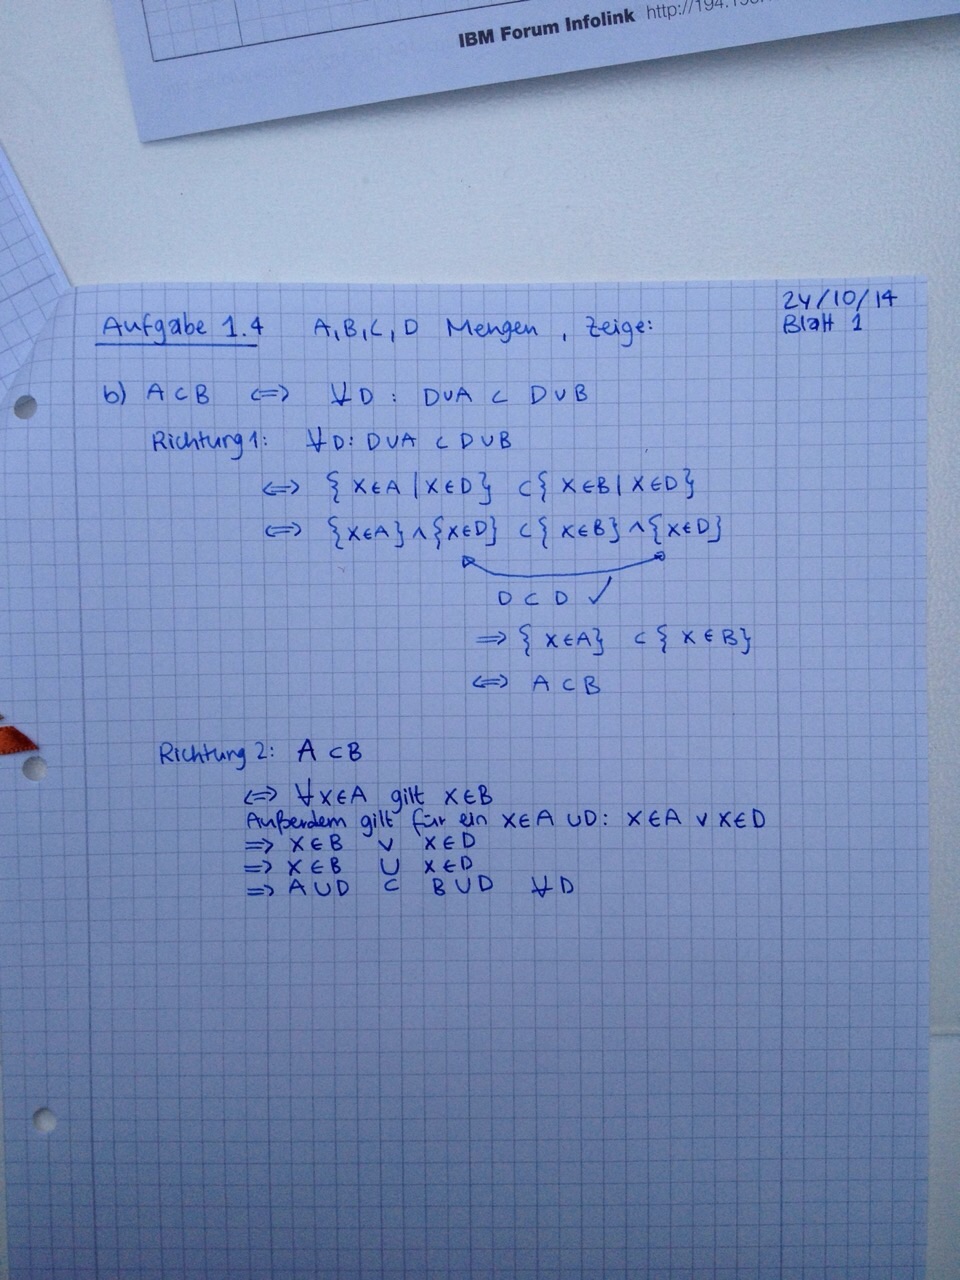 IBM Forum Infolink http://194.196.
24/10/14
Aufgabe 1.4 A,B,C,D Mengen, Zeige:
Blatt 1
b) A ⊂ B ⟺ ∀D: D∪A ⊂ D∪B
Richtung 1: ∀D: D∪A ⊂ D∪B
⟺ {x∈A | x∈D} ⊂ {x∈B | x∈D}
⟺ {x∈A} ∧ {x∈D} ⊂ {x∈B} ∧ {x∈D}
D ⊂ D ✓
⟹ {x∈A} ⊂ {x∈B}
⟺ A ⊂ B
Richtung 2: A ⊂ B
⟺ ∀x∈A gilt x∈B
Außerdem gilt für ein x∈A∪D: x∈A ∨ x∈D
⟹ x∈B ∨ x∈D
⟹ x∈B ∪ x∈D
⟹ A∪D ⊂ B∪D ∀D